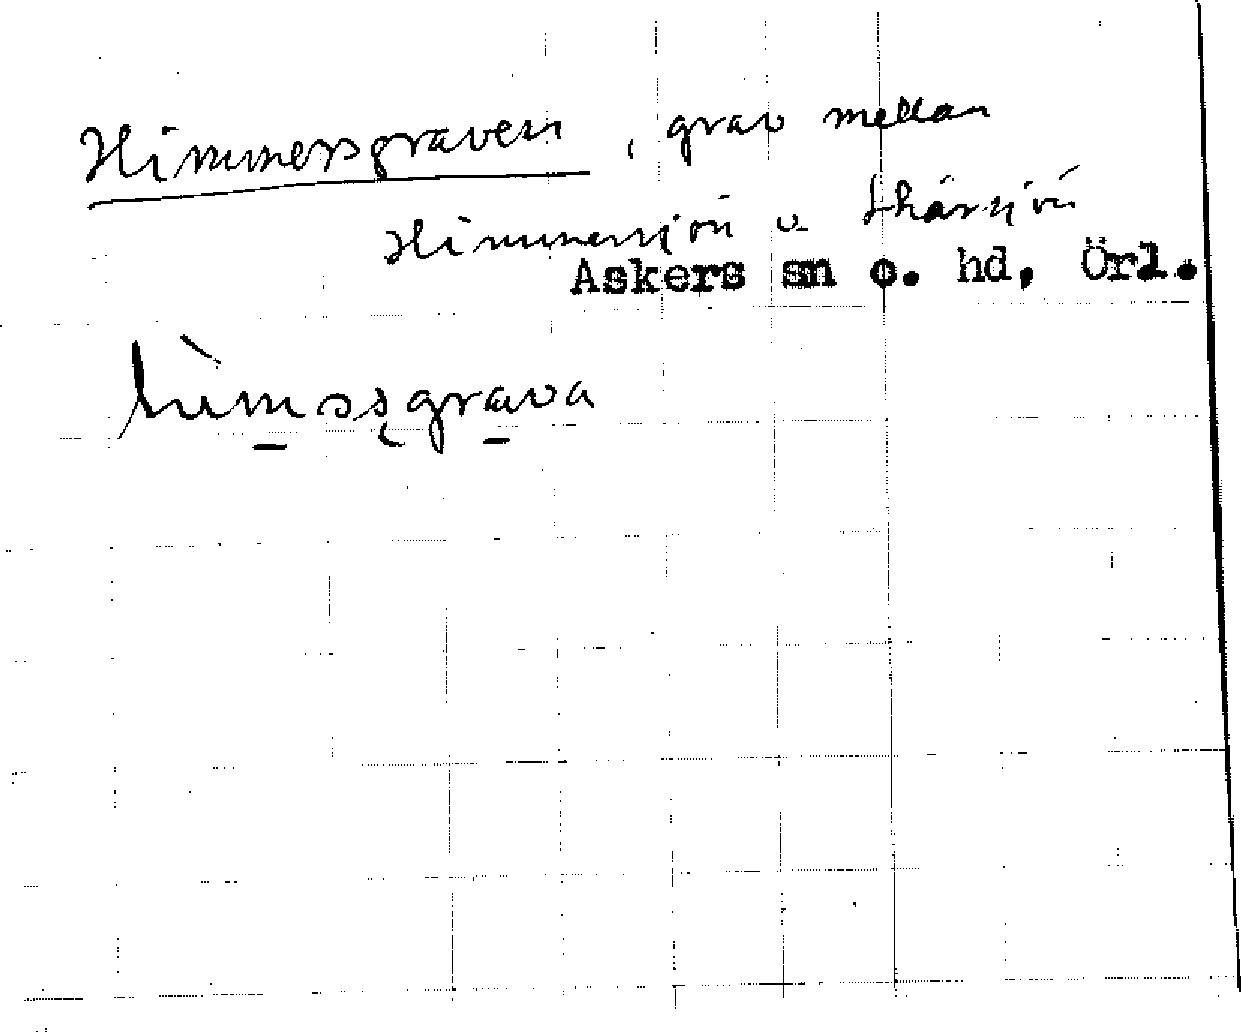 Himmersgraven, grav mellan
Himmersjön o Skärsjön
Askers sn o. hd, Örl.
hìmǝsgrava